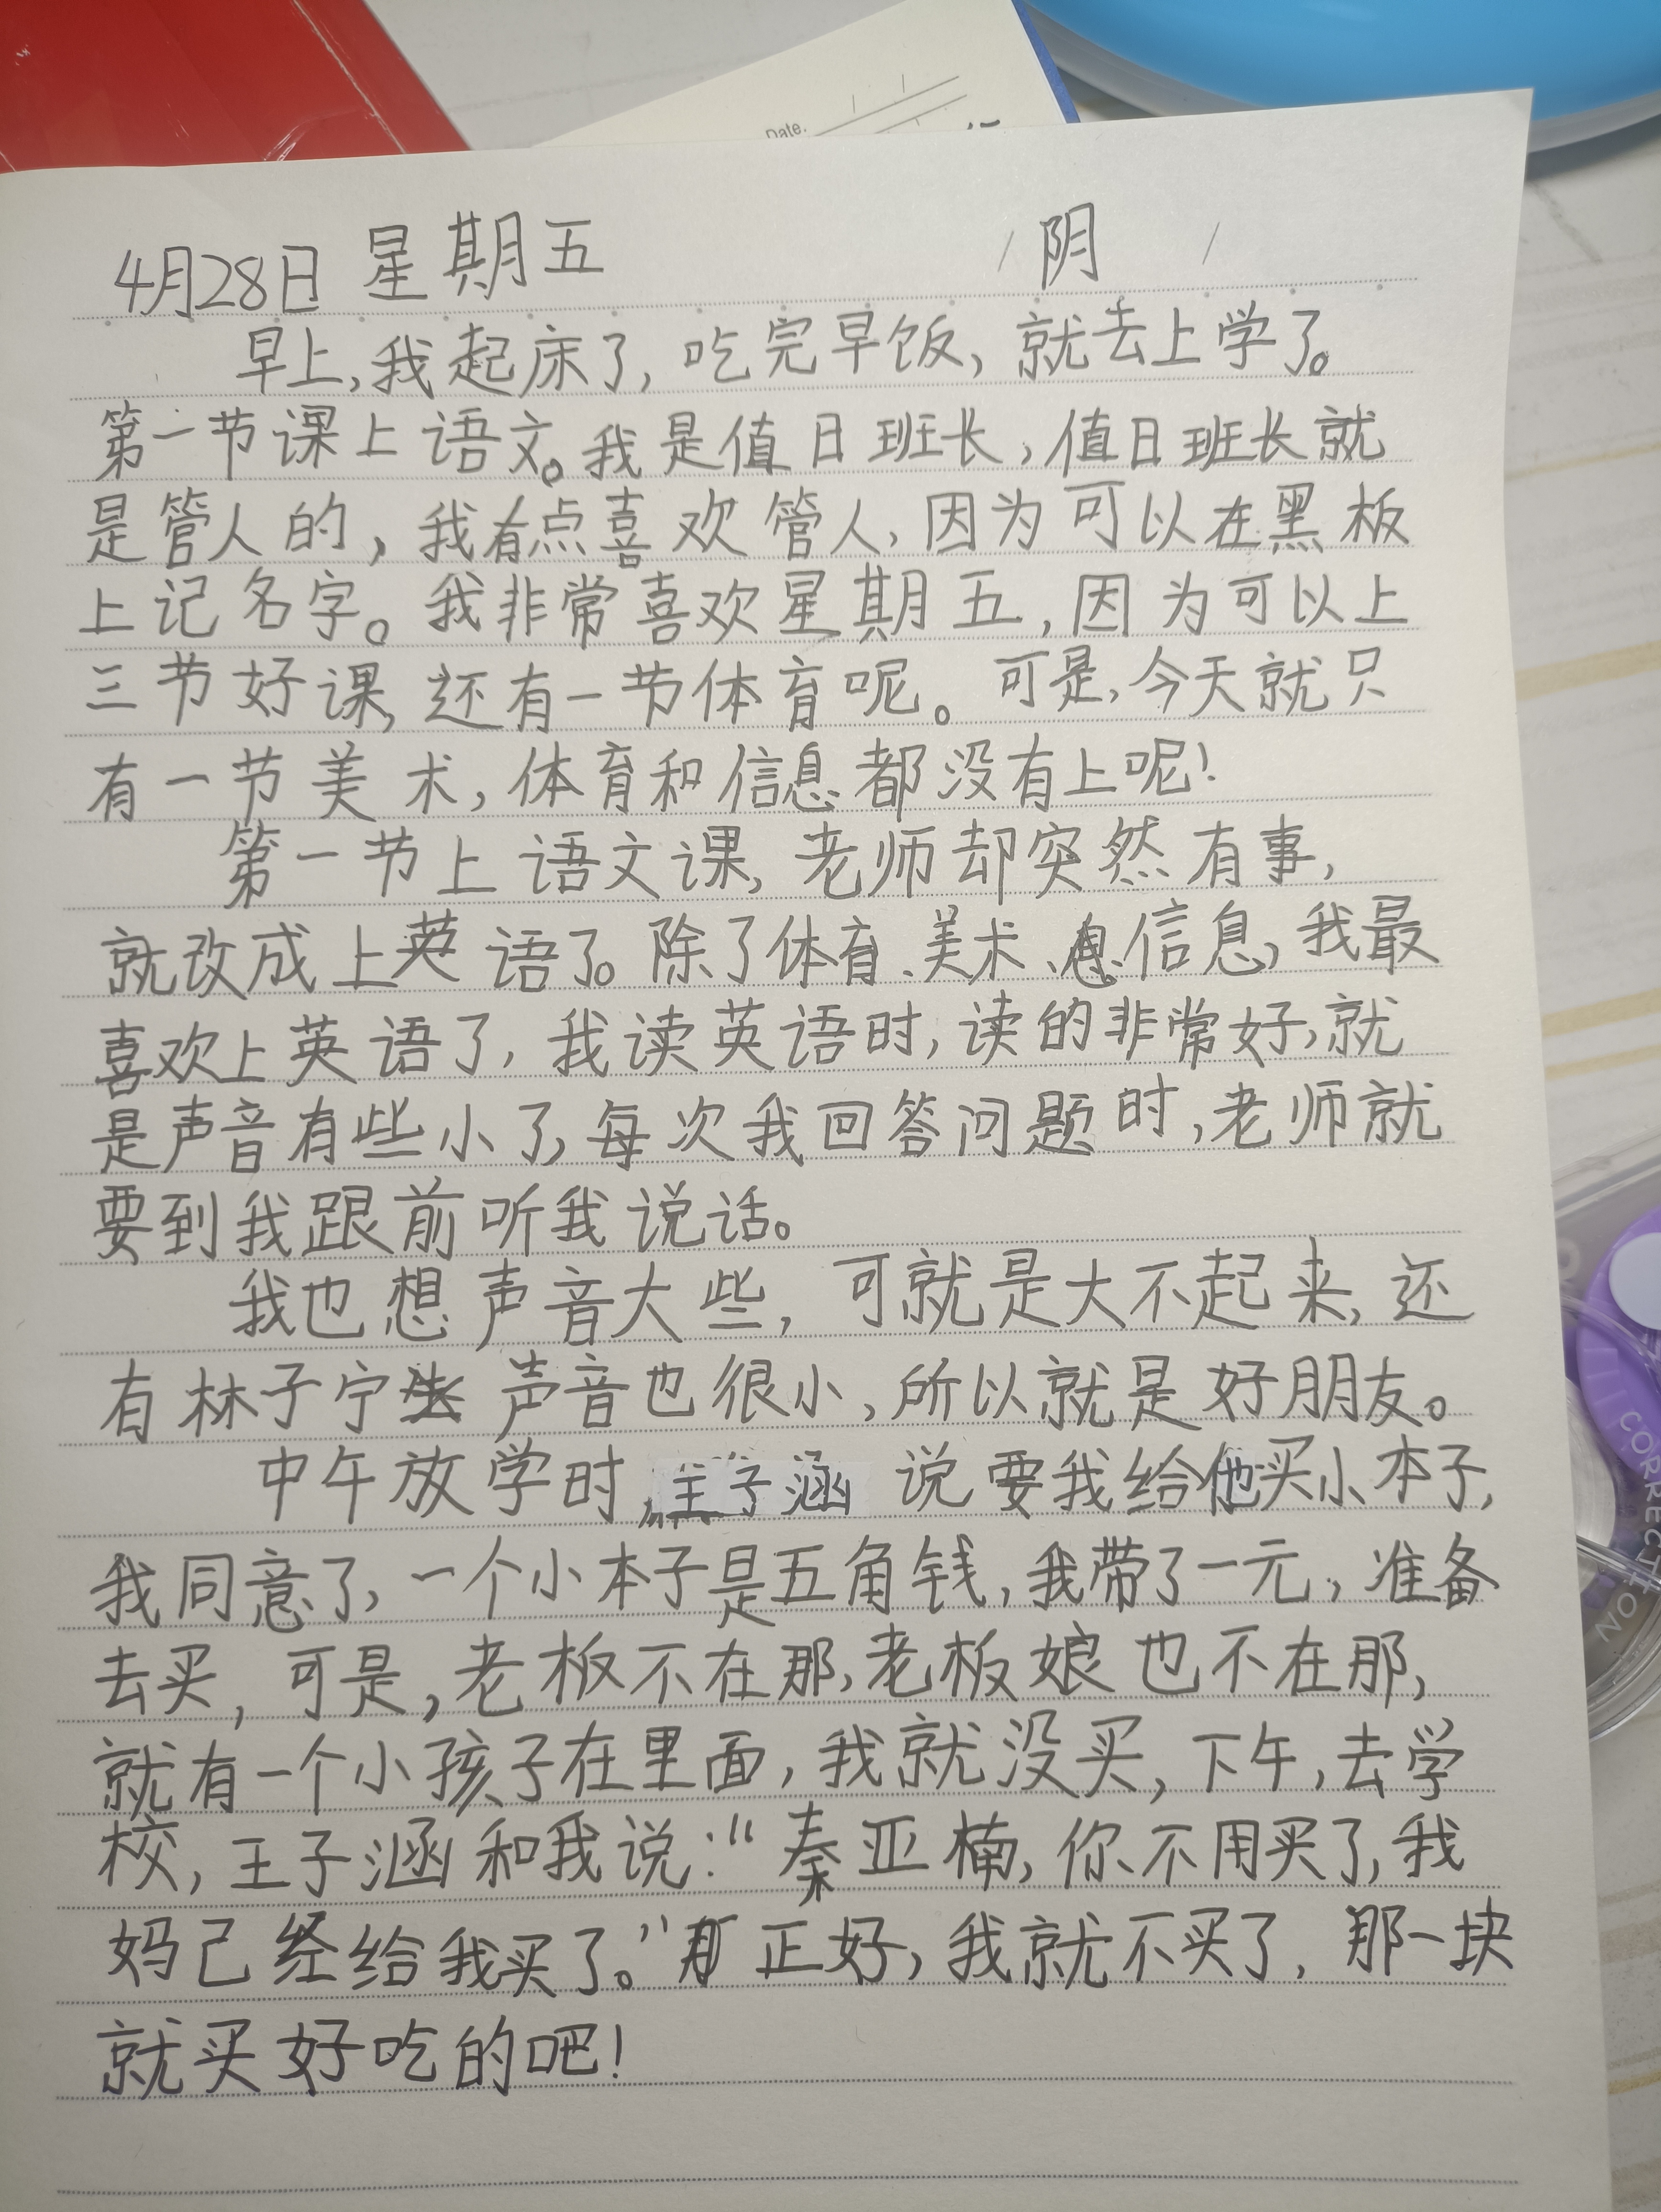 Date.
4月28日 星期五 阴
早上,我起床了,吃完早饭,就去上学了。
第一节课上语文。我是值日班长,值日班长就
是管人的,我有点喜欢管人,因为可以在黑板
上记名字。我非常喜欢星期五,因为可以上
三节好课,还有一节体育呢。可是,今天就只
有一节美术,体育和信息都没有上呢!
第一节上语文课,老师却突然有事,
就改成上英语了。除了体育、美术、信息,我最
喜欢上英语了,我读英语时,读的非常好,就
是声音有些小了,每次我回答问题时,老师就
要到我跟前听我说话。
我也想声音大些,可就是大不起来,还
有林子宁声音也很小,所以就是好朋友。
中午放学时,王子涵说要我给他买小本子,
我同意了,一个小本子是五角钱,我带了一元,准备
去买,可是,老板不在那,老板娘也不在那,
就有一个小孩子在里面,我就没买,下午,去学
校,王子涵和我说:“秦亚楠,你不用买了,我
妈己经给我买了。”正好,我就不买了,那一块
就买好吃的吧!
CORRECTION